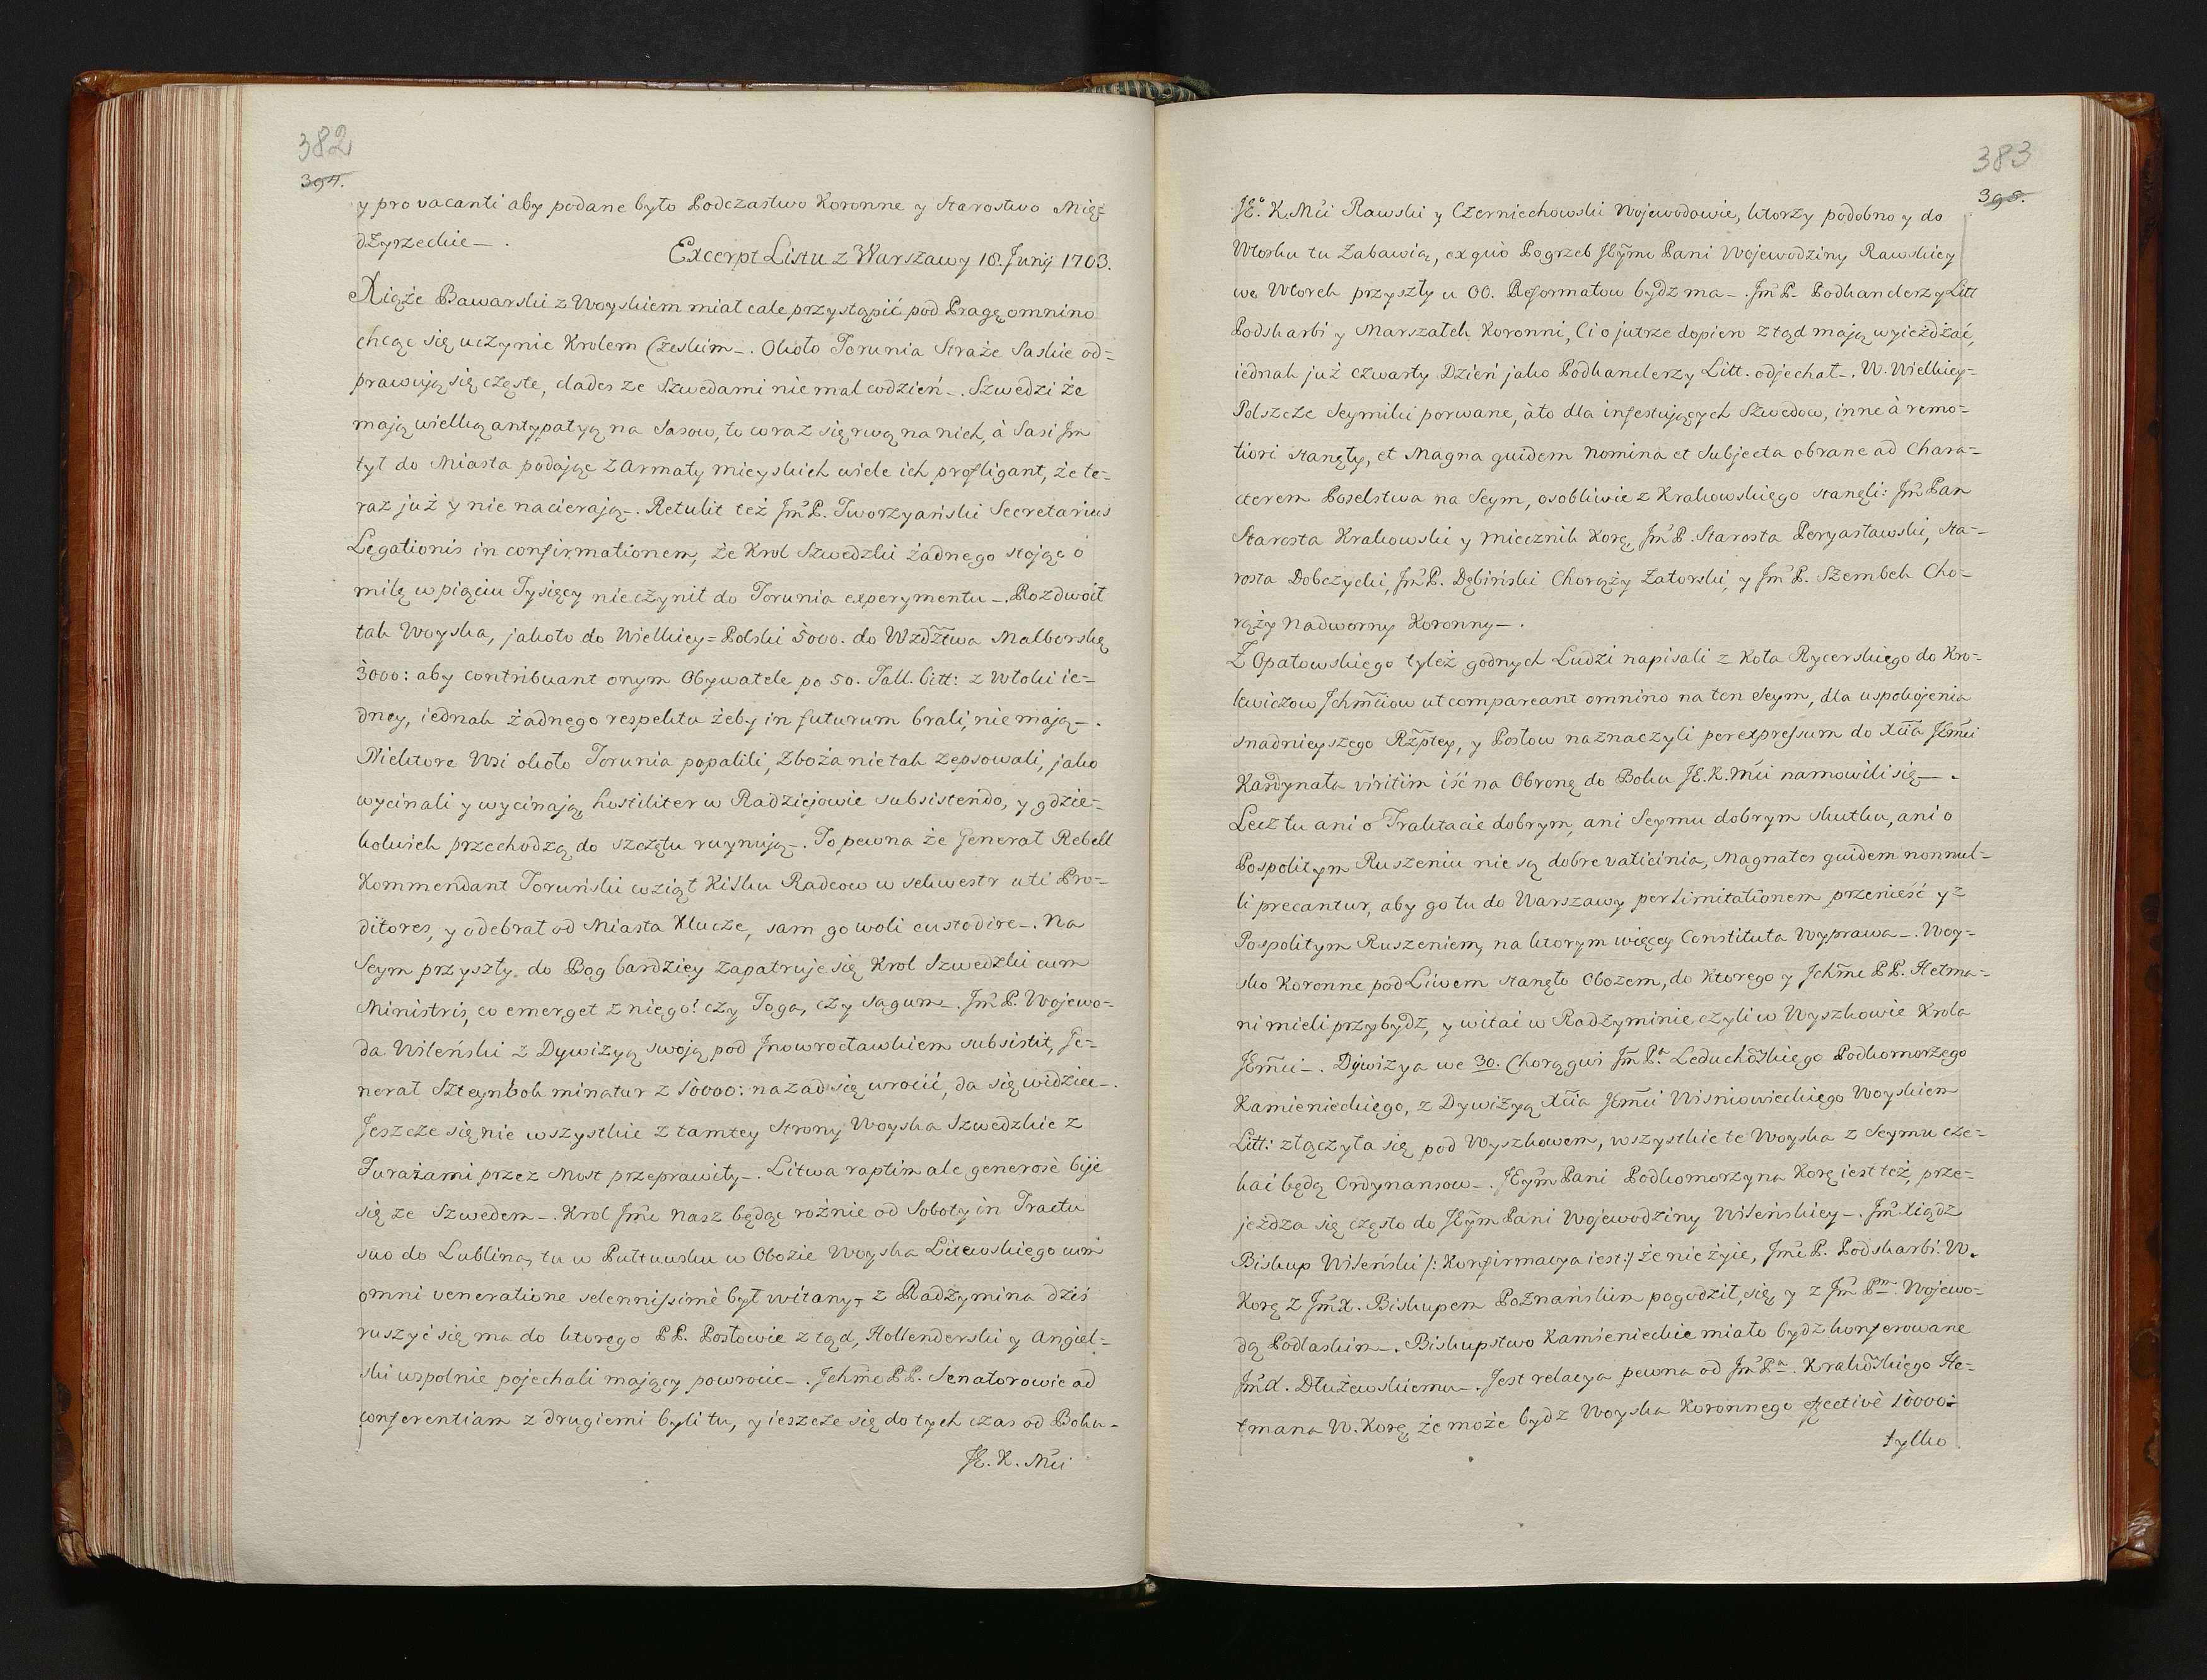 382
394.
y pro vacanti aby podane było Podczastwo Koronne y Starostwo Mię=
dzyrzeckie_ .
Excerpt Listu z Warszawy 18. Junij 1703.
Xiąże Bawarski z Woyskiem miał cale przystąpić pod Pragę omnino
chcąc się uczynic Krolem Czeskim_. Około Torunia Straże Saskie od=
prawują się częste, clades ze Szwedami nie mal codzień_. Szwedzi że
mają wielką antypatyą na Sasow, to coraz się rwą na nich, à Sasi Im
tył do Miasta podając z Armaty mieyskich wiele ich profligant, że te=
raz już y nie nacierają_. Retulit też Jm̃ P. Tworzyański Secretarius
Legationis in confirmationem, że Krol Szwedzki żadnego stojąc o
milę w piąciu Tysięcy nie czynił do Torunia experymentu_. Rozdwoił
tak Woyska, jakoto do Wielkiey=Polski 5000. do Wzdz̃twa Malborskię
3000: aby contribuant onym Obywatele po 50. Tall. bitt: z Włoki ie=
dney, iednak żadnego respektu żeby in futurum brali, nie mają_.
Niektore Wsi około Torunia popalili, Zboża nie tak zepsowali, jako
wycinali y wycinają hostiliter w Radziejowie subsistendo, y gdzie=
kolwiek przechodzą do szczętu ruynują_. To pewna że General Rebell
Kommendant Toruński wziął Kilku Radcow w sekwestr uti Pro=
ditores, y odebrał od Miasta Klucze, sam go woli custodire_. Na
Seym przyszły do Bog bardziey zapatruje się Krol Szwedzki cum
Ministris, co emerget z niego! czy Toga, czy Sagum_. Jm̃ P. Wojewo=
da Wileński z Dywizyą swoją pod Jnowrocławkiem subsistit, Ge=
nerał Szteynbok minatur z 10000: nazad się wrocić, da się widziec_.
Jeszcze się nie wszystkie z tamtey Strony Woyska Szwedzkie z
Furażami przez Most przeprawiły_. Litwa raptim ale generosè bije
się ze Szwedem_. Krol Jm̃c nasz będąc rożnie od Soboty in Tractu
suo do Lublina, tu w Pułtusku w Obozie Woyska Litewskiego cum
omni veneratione solennissimè był witany, z Radzymina dziś
ruszyć się ma do ktorego PP. Posłowie z tąd, Hollenderski y Angiel=
ski wspolnie pojechali mający powrocic_. Jchm̃c PP. Senatorowie ad
conferentiam z drugiemi byli tu, y ieszcze się do tych czas od Boku_
JE. K. Mći
383
395.
JE.º K Mći Rawski y Czerniechowski Wojewodowie, ktorzy podobno y do
Wtorku tu zabawią, ex quò Pogrzeb JEỹmc Pani Wojewodziny Rawskiey
we Wtorek przyszły u OO. Reformatow bydz ma_. Jm̃ P. Podkanclerzy Litt
Podskarbi y Marszałek Koronni, Ci o jutrze dopiero z tąd mają wyieżdżać,
iednak już czwarty Dzień jako Podkanclerzy Litt. odjechał_. W. Wielkiey=
Polszcze Seymiki porwane, àto dla infestujących Szwedow, inne à remo=
tiori stanęły, et Magna quidem nomina et Subjecta obrane ad Chara=
cterem Poselstwa na Seym, osobliwie z Krakowskiego stanęli: Jm̃ Pan
Starosta Krakowski y Miecznik Korę, Jm̃ P. Starosta Peryasławski, Sta=
rosta Dobczycki, Jm̃ P. Dębiński Chorąży Zatorski, y Jm̃ P. Szembek Cho=
rąży Nadworny Koronny_ .
Z Opatowskiego tyleż godnych Ludzi napisali z Koła Rycerskiego do Kro=
lewiczow Jchm̃ciow ut compareant omnino na ten Seym, dla uspokojenia
snadnieyszego Rz̃ptey, y Posłow naznaczyli per expressum do Xcia JEm̃ci
Kardynała viritim iść na Obronę do Boku JE. K. Mći namowili się_ .
Lecz tu ani o Traktacie dobrym, ani Seymu dobrym skutku, ani o
Pospolitym Ruszeniu nie są dobre vaticinia, Magnates quidem nonnul=
li precantur, aby go tu do Warszawy per limitationem przenieść y z
Pospolitym Ruszeniem, na ktorym więcey Constituta Wyprawa_. Woy=
sko Koronne pod Liwem stanęło Obozem, do Ktorego y Jchm̃c PP. Hetma=
ni mieli przybydz, y witai w Radzyminie czyli w Wyszkowie Krola
JEm̃ci_. Dywizya we 30. Chorągwi Jm̃ Pª Leduchõskiego Podkomorzego
Kamienieckiego, z Dywizyą Xcia JEm̃ci Wisniowieckiego Woyskiem
Litt: złączyła się pod Wyszkowem, wszystkie te Woyska z Seymu cze=
kai będą Ordynansow_. JEỹm Pani Podkomorzyna Korę iest też, prze=
jeżdza się często do JEỹm Pani Wojewodziny Wileńskiey_. Jm̃ Xiądz
Biskup Wileński /: Konfirmacya iest :/ że nie żyie, Jm̃c P. Podskarbi W.
Korę z Jm̃ X. Biskupem Poznańskim pogodził się y z Jm̃ Pᵐ. Wojewo=
dą Podlaskim_. Biskupstwo Kamienieckie miało bydz konferowane
Jm̃ X. Dłużewskiemu_. Jest relacya pewna od Jm̃ Pª. Krakõskiego He=
tmana W. Korę, że może bydz Woyska Koronnego effective 10000:
tylko